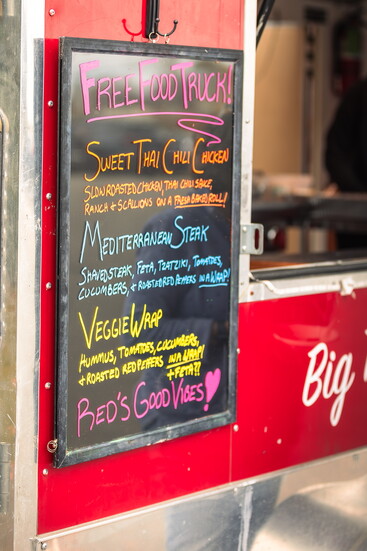 FREE FOOD TRUCK!
SWEET THAI CHILI CHICKEN
SLOW ROASTED CHICKEN, THAI CHILI SAUCE,
RANCH & SCALLIONS ON A FRESH BAKED ROLL!
MEDITERRANEAN STEAK
SHAVED STEAK, FETA, TZATZIKI, TOMATOES,
CUCUMBERS, & ROASTED RED PEPPERS IN A WRAP!
VEGGIE WRAP
HUMMUS, TOMATOES, CUCUMBERS,
& ROASTED RED PEPPERS IN A WRAP!
+ FETA?!
RED'S GOOD VIBES!
Big